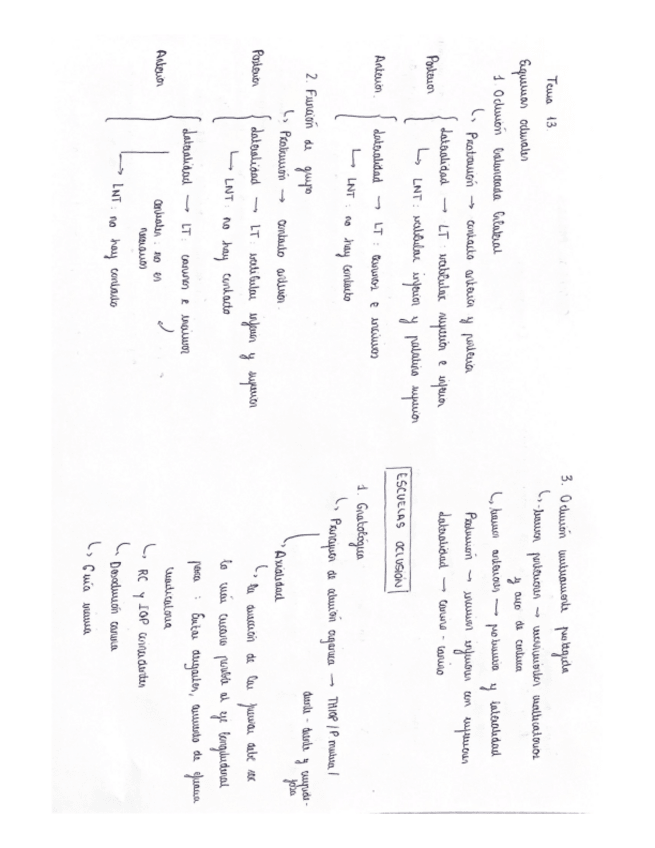 Tema 13
Esquemas oclusales
1 Oclusión balanceada bilateral
↳ Protrusión → contacto anterior y posterior
Posterior { Lateralidad → LT: vestibular superior e inferior
↳ LNT: vestibular inferior y palatino superior
Anterior { Lateralidad → LT: caninos e incisivos
↳ LNT: no hay contacto
2. Función de grupo
↳ Protrusión → contacto anterior.
Posterior { Lateralidad → LT: vestibular inferior y superior
↳ LNT: no hay contacto
Anterior { Lateralidad → LT: caninos e incisivos
centrales: no es
necesarios
↳ LNT: no hay contacto
3. Oclusión mutuamente protegida
↳ posteriores → movimientos masticatorios
y arco de
↳ anteriores → protrusiva y lateralidad
Protrusión → inferiores con superiores
Lateralidad → canino - canino
ESCUELAS OCLUSIÓN
1. Gnatológica
↳ Principios de oclusión orgánica → THIOP / P mutua /
diente - diente y cúspide -
fosa
↳ Axialidad
↳ la dirección de las fuerzas debe ser
lo más cercano posible al eje longitudinal
para: Evitar desgastes, aumento de eficacia
masticatoria
↳ RC y IOP coincidentes
↳ Desoclusión canina
↳ Guía